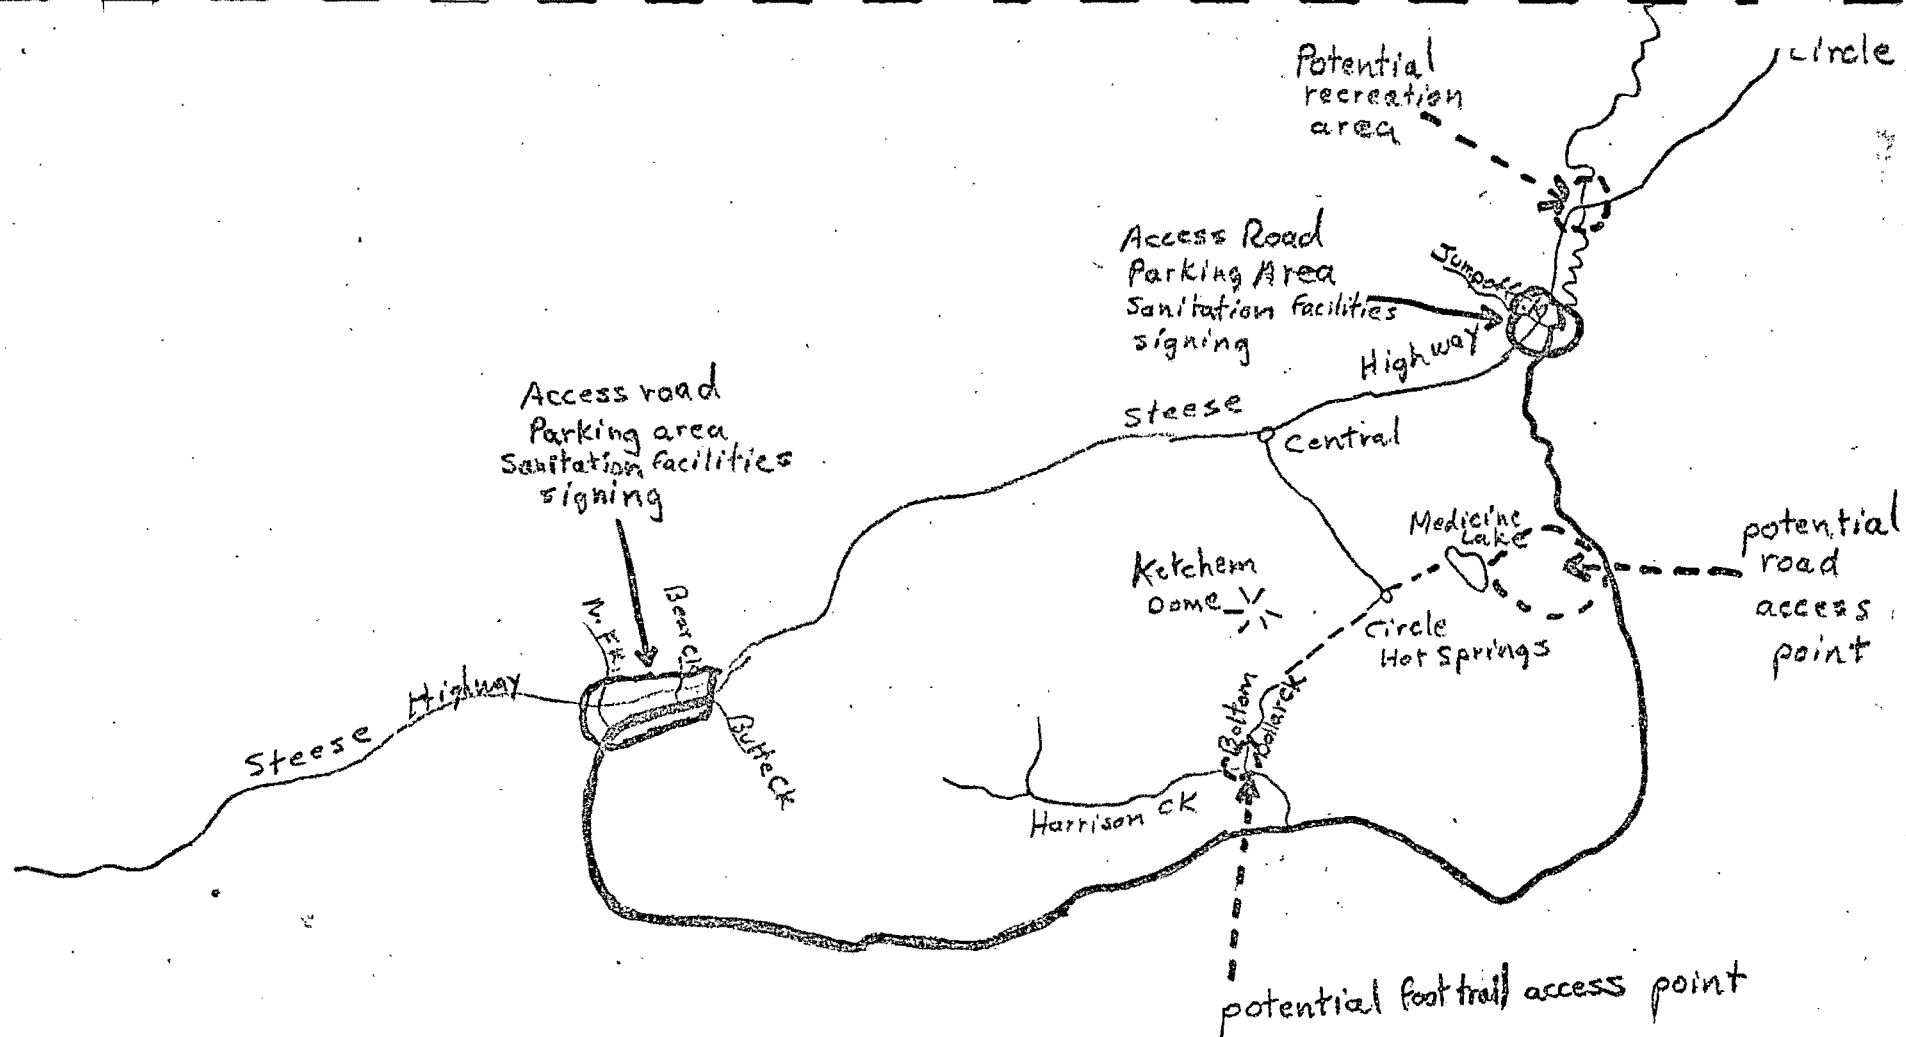 Circle
Potential
recreation
area
Access Road
Parking Area
Sanitation Facilities
signing
Jumpoff
Highway
Steese
Central
Access road
Parking area
Sanitation Facilities
signing
Medicine
Lake
potential
road
access
point
Ketchem
Dome
Circle
Hot Springs
N. Fk.
Bear Ck
Highway
Steese
Butte Ck
Bottom
Dollar Ck
Harrison CK
potential foot trail access point